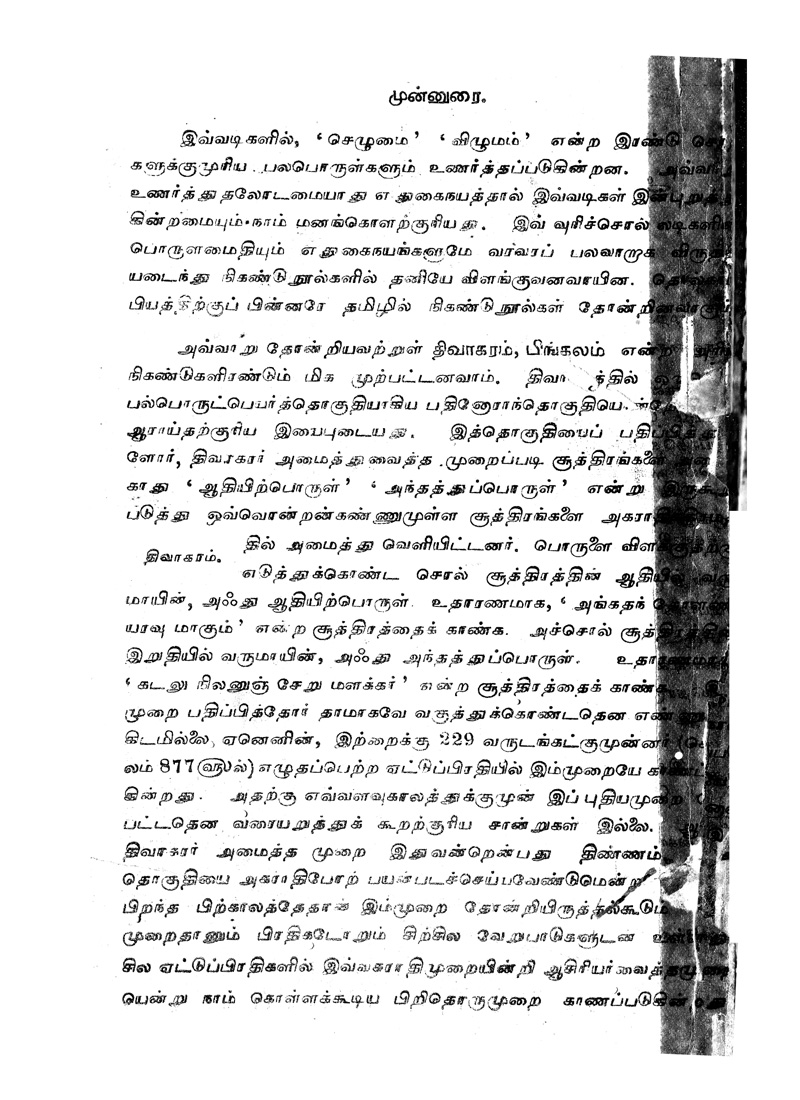 முன்னுரை.
இவ்வடிகளில், ‘செழுமை’ ‘விழுமம்’ என்ற இரண்டு சொ
களுக்குமுரிய பலபொருள்களும் உணர்த்தப்படுகின்றன. அவ்வா
உணர்த்துதலோடமையாது எதுகைநயத்தால் இவ்வடிகள் இன்புறுத்
கின்றமையும் நாம் மனங்கொளற்குரியது. இவ் வுரிச்சொல் லடிகளின்
பொருளமைதியும் எதுகைநயங்களுமே வரவரப் பலவாறாக விருத்தி
யடைந்து நிகண்டுநூல்களில் தனியே விளங்குவனவாயின.
பியத்திற்குப் பின்னரே தமிழில் நிகண்டுநூல்கள்
அவ்வாறு தோன்றியவற்றுள் திவாகரம், பிங்கலம் என்ற
நிகண்டுகளிரண்டும் மிக முற்பட்டனவாம்.
பல்பொருட்பெயர்த்தொகுதியாகிய
ஆராய்தற்குரிய இயைபுடையது. இத்தொகுதியைப் பதிப்பித்து
ளோர், திவாகரர் அமைத்துவைத்த முறைப்படி சூத்திரங்களை
காது ‘ஆதியிற்பொருள்’ ‘அந்தத்துப்பொருள்’ என்று
படுத்து ஒவ்வொன்றன்கண்ணுமுள்ள சூத்திரங்களை
திவாகரம்.
தில் அமைத்து வெளியிட்டனர். பொருளை விளக்குதற்கு
எடுத்துக்கொண்ட சொல் சூத்திரத்தின் ஆதியில் வரு
மாயின், அஃது ஆதியிற்பொருள். உதாரணமாக, ‘அங்கதந்
யரவு மாகும்’ என்ற சூத்திரத்தைக் காண்க. அச்சொல் சூத்திரத்தின்
இறுதியில் வருமாயின், அஃது அந்தத்துப்பொருள். உதாரணமாக
‘கடலு நிலனுஞ் சேறு மளக்கர்’ என்ற சூத்திரத்தைக் காண்க.
முறை பதிப்பித்தோர் தாமாகவே வகுத்துக்கொண்டதென
கிடமில்லை, ஏனெனின், இற்றைக்கு 229 வருடங்கட்குமுன்னர்
லம் 877(ஹுல்) எழுதப்பெற்ற ஏட்டுப்பிரதியில் இம்முறையே
கின்றது. அதற்கு எவ்வளவுகாலத்துக்குமுன் இப் புதியமுறை
பட்டதென வரையறுத்துக் கூறற்குரிய சான்றுகள் இல்லை.
திவாகரர் அமைத்த முறை இதுவன்றென்பது திண்ணம்.
தொகுதியை அகராதிபோற் பயன்படச்செய்யவேண்டுமென்ற
பிறந்த பிற்காலத்தேதான் இம்முறை தோன்றியிருத்தல்கூடும்
முறைதானும் பிரதிகடோறும் சிற்சில வேறுபாடுகளுடன்
சில ஏட்டுப்பிரதிகளில் இவ்வகராதிமுறையின்றி ஆசிரியர்வைத்தமுறை
யென்று நாம் கொள்ளக்கூடிய பிறிதொருமுறை காணப்படுகின்றது